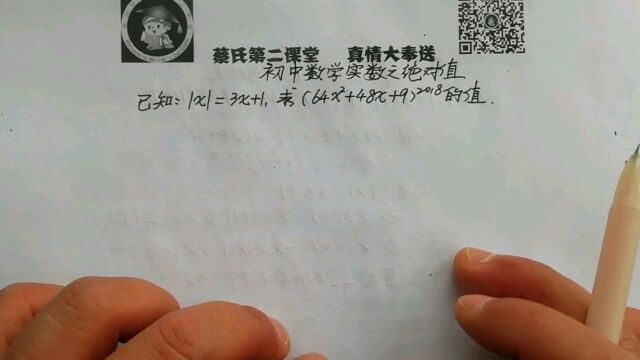 蔡氏第二课堂 真情大奉送
初中数学实数之绝对值
已知：|x|=3x+1, 求(64x²+48x+9)²⁰¹⁸的值.